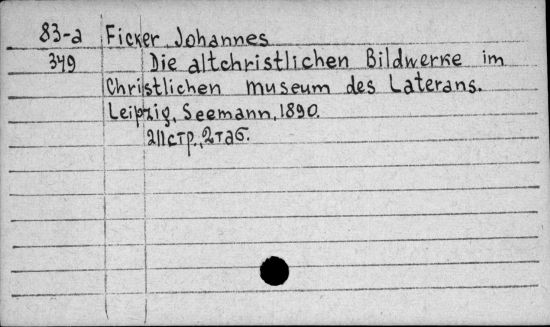 83-а Ficker Johannes
349 Die altchristlichen Bildwerke im
Christlichen museum des Laterans.
Leipzig, Seemann, 1890.
211стр., 2таб.